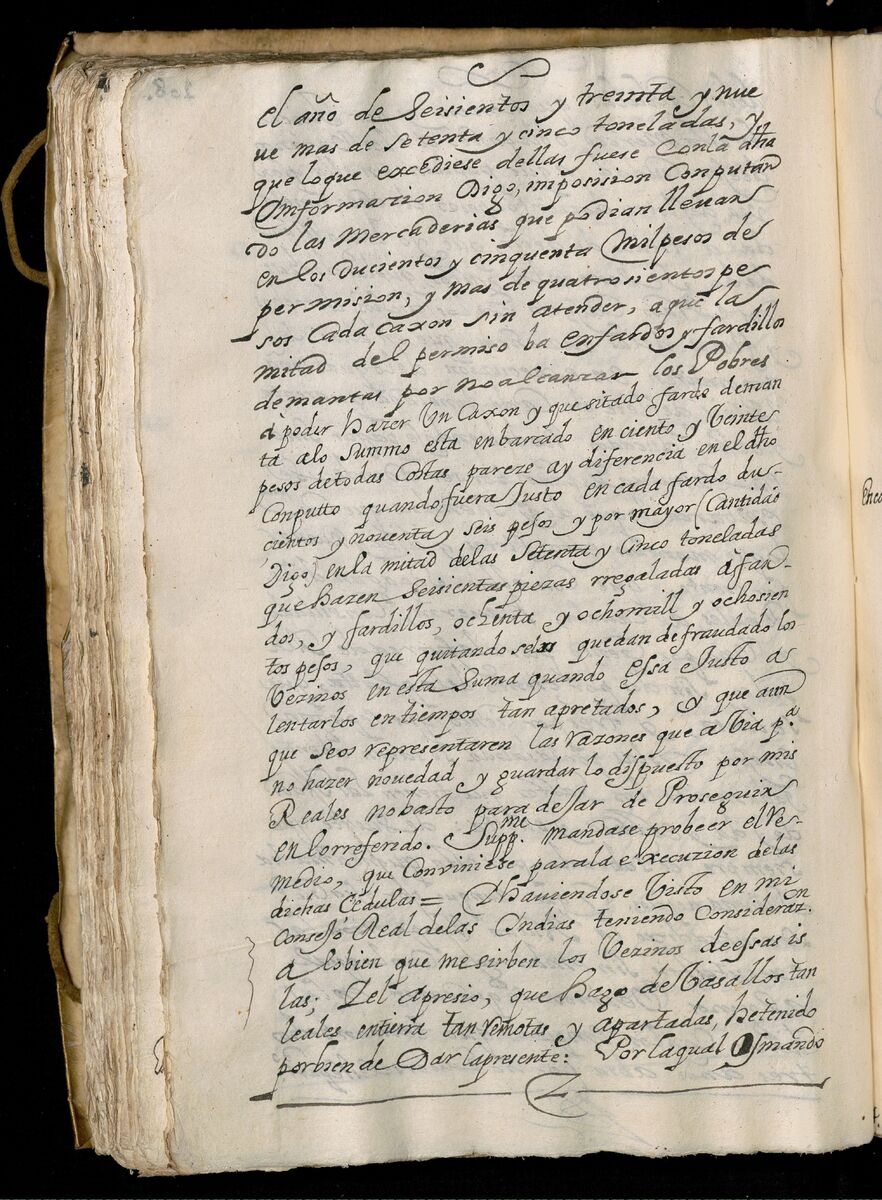 el año de Seisientos y treinta y nue
ve mas de setenta y cinco toneladas, y
que loque excediese dellas fuese Conla dha
Ynformazion Digo, imposision Conputan
do las Mercaderias que podian llevar
en los ducientos y cinquenta Milpesos de
permision, y mas de quatrosientos pe
sos Cada caxon sin atender, aque la
mitad del permiso ba enfardos y fardillos
demantas por noalcanzar los Pobres
à poder hazer Un Caxon y que sitado fardo deman
ta alo summo esta enbarcado en ciento y Veinte
pesos detodas Costas pareze ay diferencia en el dho
Conputto quando fuera Justo en cada fardo dus-
cientos y noventa y seis pesos y por mayor (Cantidad
Digo) en la mitad delas Setenta y Cinco toneladas
que hazen Seisientas piezas rregaladas à far-
dos, y fardillos, ochenta y ochomill y ochosien
tos pesos, que quitandoselos quedan defraudado los
Vezinos en esta Suma quando essa Justo a
lentarlos en tiempos tan apretados, y que aun
que seos representaren las razones que abia p.ª
no hazer novedad y guardar lo dispuesto por mis
Reales no basto para dejar de Proseguir
en lo rreferido. Supp.me mandase probeer el re-
medio, que Conviniese para la execuzion delas
dichas Cedulas= Yhaviendose Visto en mi
Consejo Real delas Yndias teniendo Considerazn.
a lobien que me sirben los Vezinos de essas is
las; Yel apresio, que hago de Vasallos tan
leales en tierra tan remotas y apartadas, hetenido
porbien de Dar lapresente: Por laqual Osmando